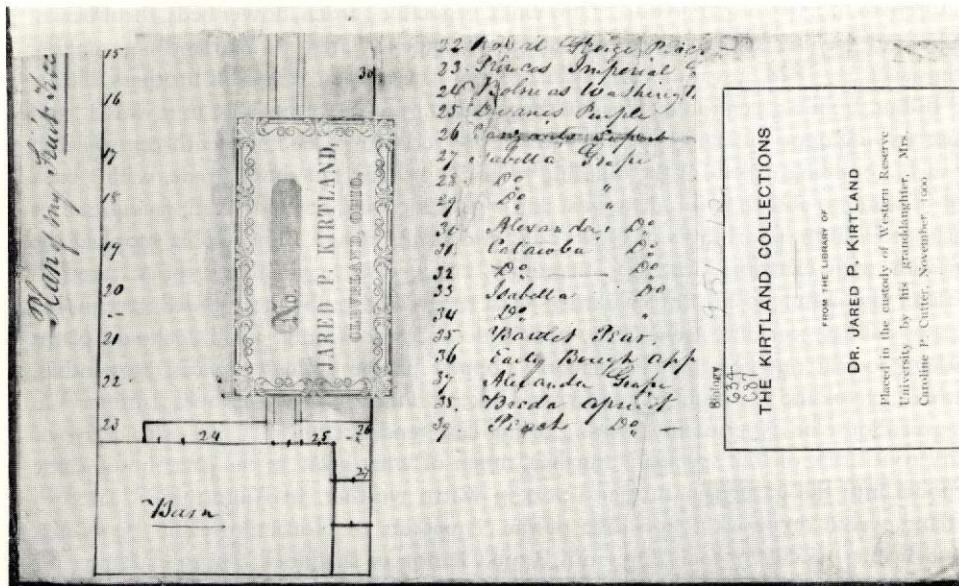 Plan of my Fruit Trees
15
16
17
18
19
20
21
22
23
24
25
26
27
30
Barn
No.
JARED P. KIRTLAND,
CLEVELAND, OHIO.
22 George
23 Princes Imperial G
24 Bolmeas Washingt
25 Duanes Purple
26
27 Isabella Grape
28 Do "
29 Do "
30 Alexander Do
31 Catawba Do
32 Do — Do
33 Isabella Do
34 Do "
35 Bartlet Pear.
36 Early Bough app
37 Alexander Grape
38. Breda Apricot
39. Peach Do —
Biology
634
C87
THE KIRTLAND COLLECTIONS
FROM THE LIBRARY OF
DR. JARED P. KIRTLAND
Placed in the custody of Western Reserve
University by his granddaughter, Mrs.
Caroline P. Cutter, November, 1900.